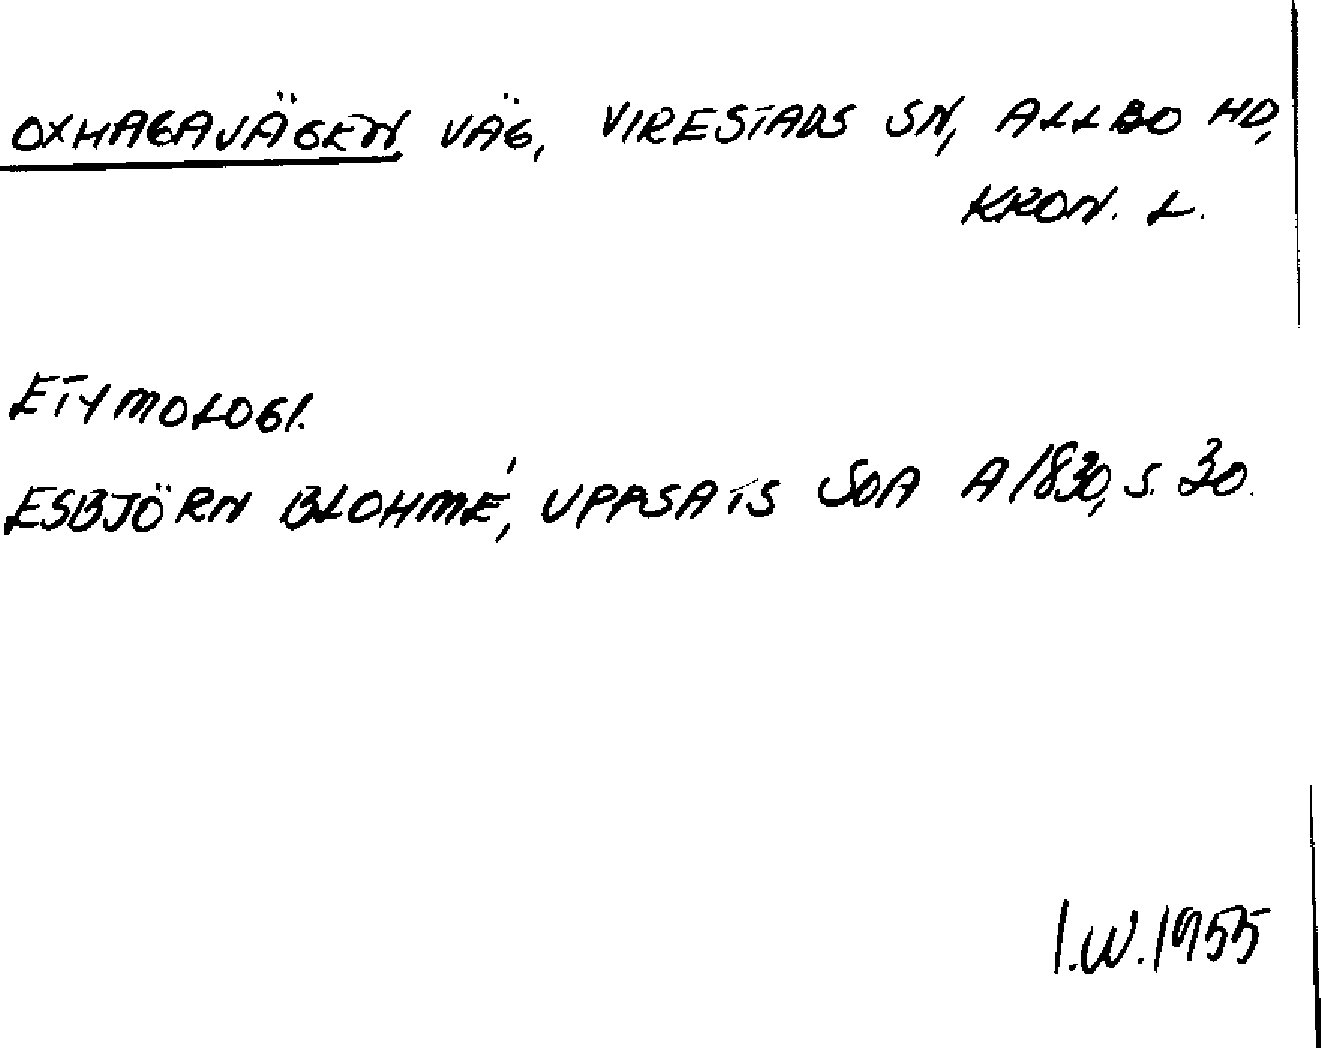 OXHAGAVÄGEN VÄG, VIRESTADS SN, ALLBO HD,
KRON. L.
ETYMOLOGI.
ESBJÖRN BLOHMÉ, UPPSATS SOA A/830, S. 30.
I.W. 1955